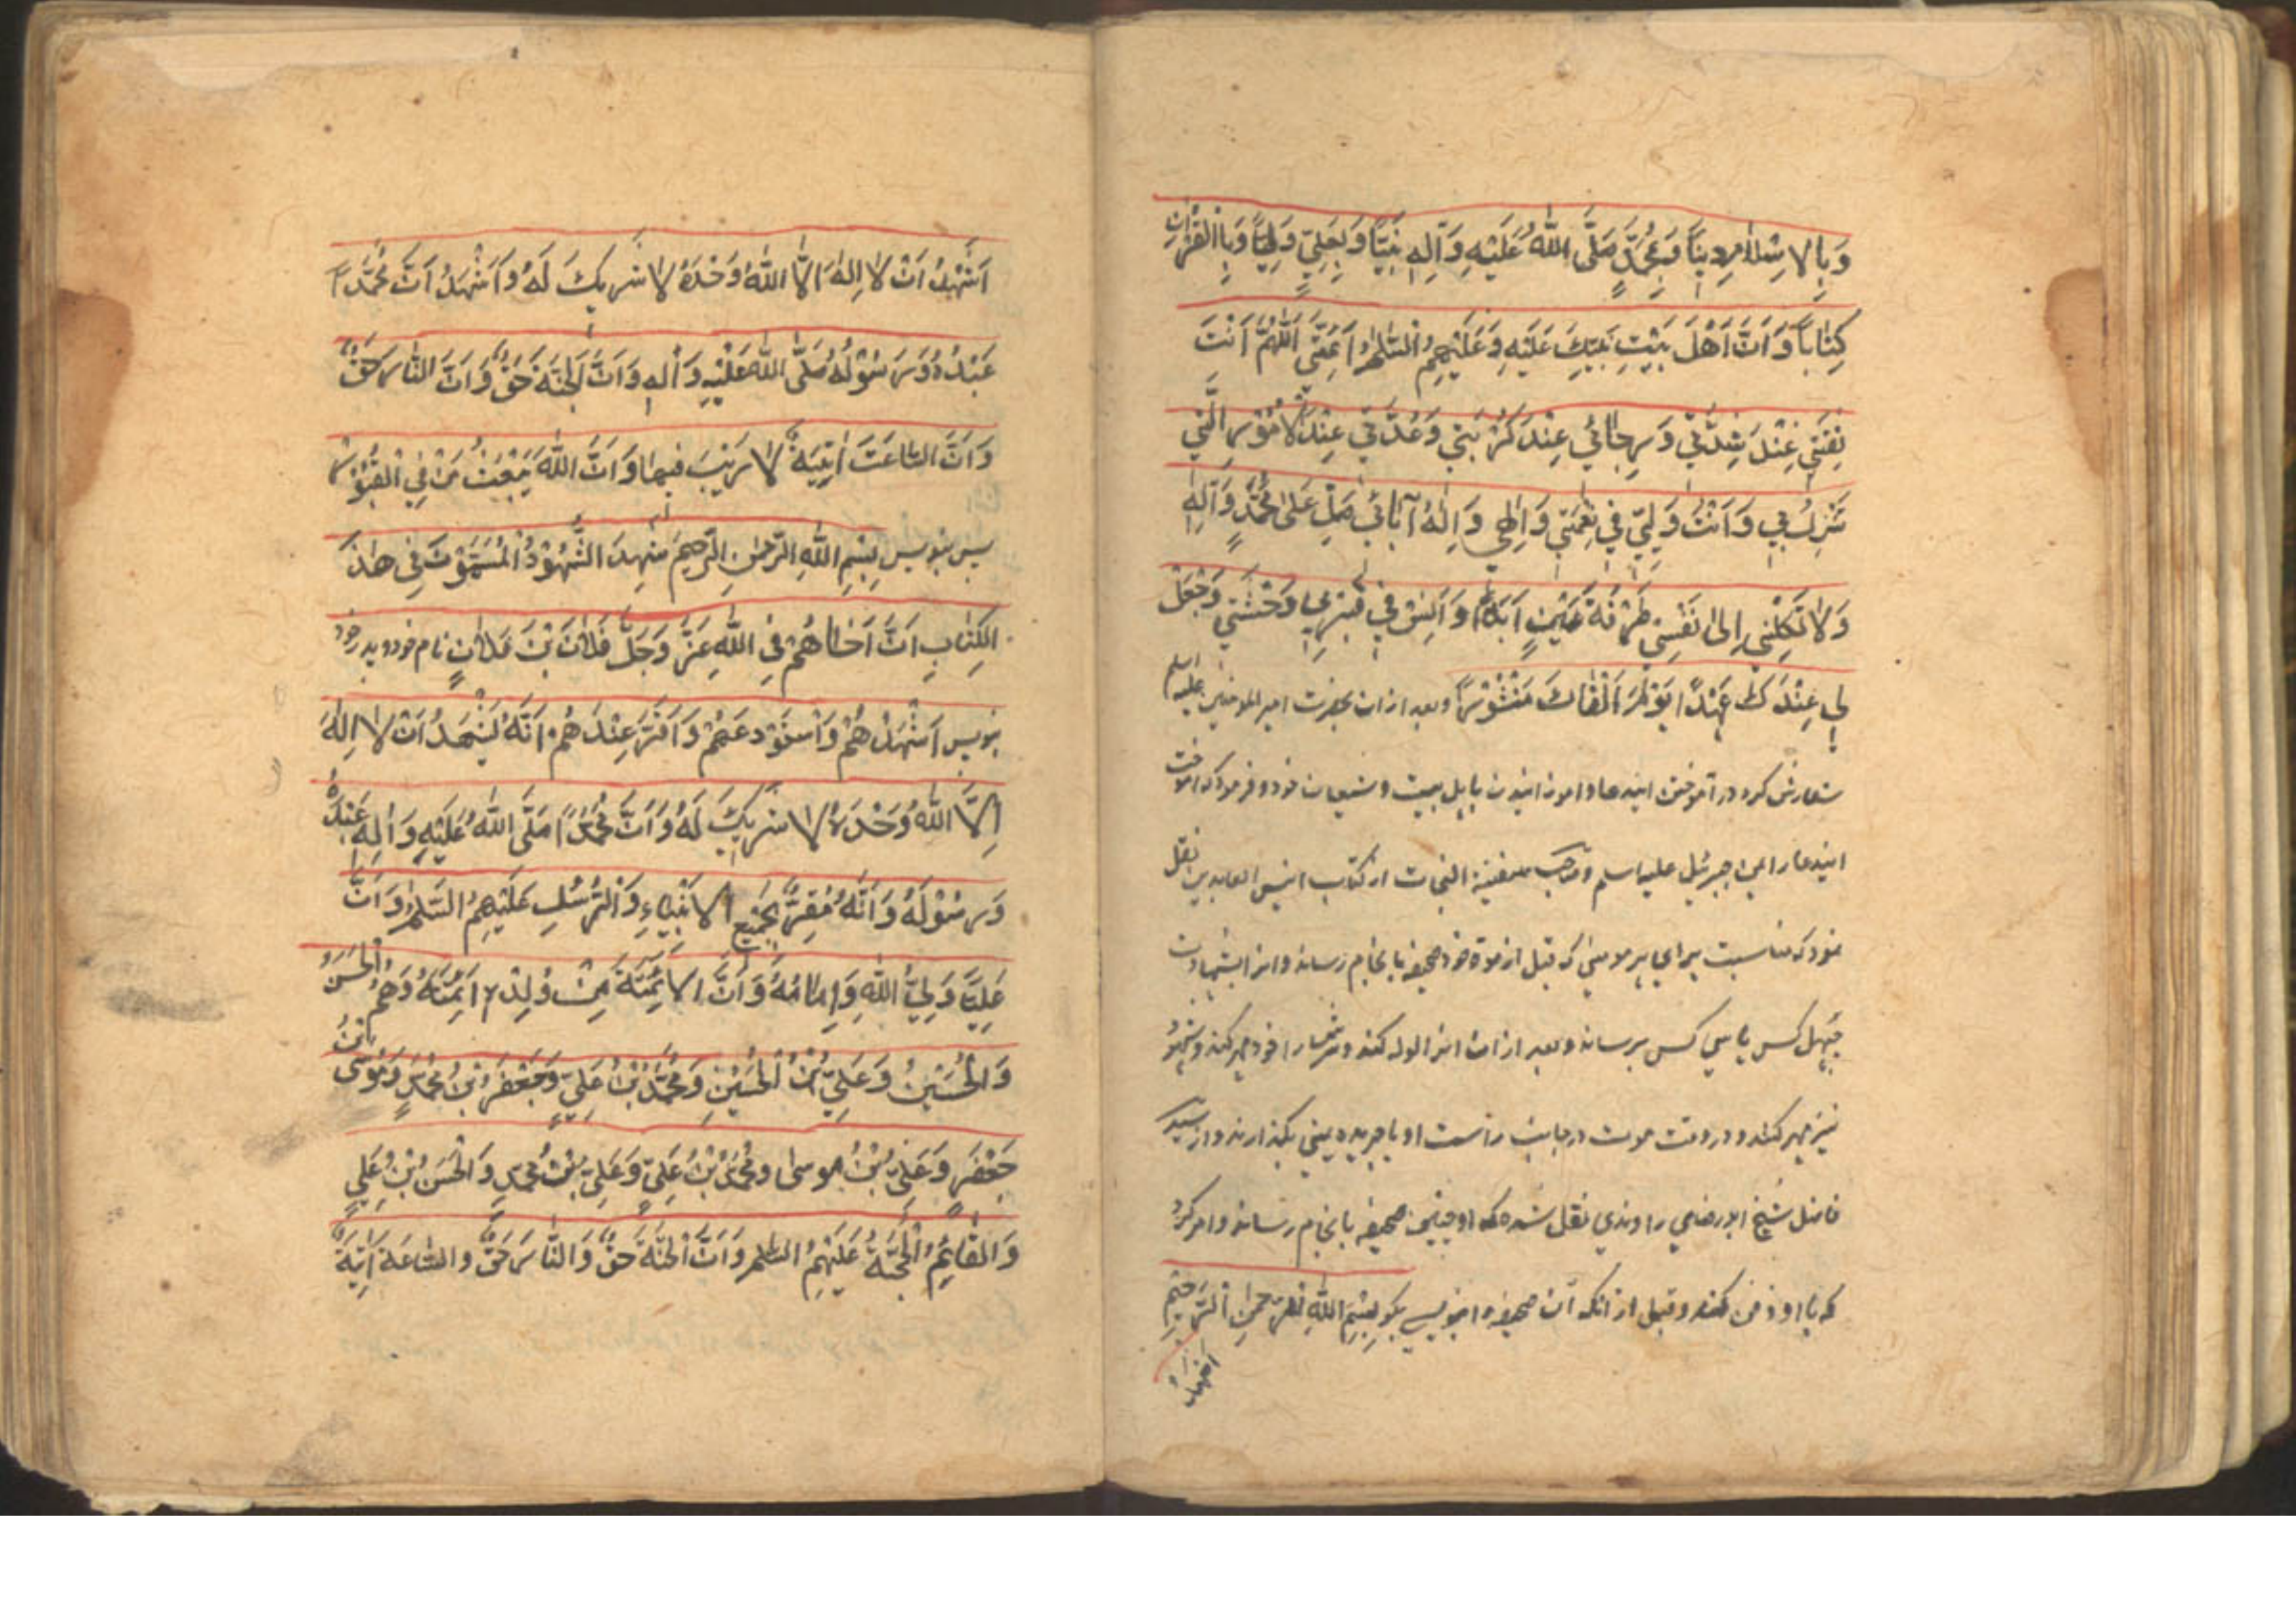 وَبِالاِسْلامِ دِینًا وَبِمُحَمَّدٍ صَلَّی اللهُ عَلَیْهِ وَآلِهِ نَبِیًّا وَبِعَلِیٍّ وَلِیًّا وَبِالْقُرْانِ
کِتٰابًا وَاَنَّ اَهْلَ بَیْتِ نَبِیِّکَ عَلَیْهِ وَعَلَیْهِمُ السَّلٰمُ اَئِمَّتِی اَللّٰهُمَّ اَنْتَ
ثِقَتِی عِنْدَ شِدَّتِی وَرِجٰائِی عِنْدَ کُرْبَتِی وَعُدَّتِی عِنْدَ الْاُمُوْرِ الَّتِی
تَنْزِلُ بِی وَاَنْتَ وَلِیِّی فِی نِعْمَتِی وَاِلٰهِی وَاِلٰهُ آبٰائِی صَلِّ عَلٰی مُحَمَّدٍ وَآلِهِ
وَلٰا تَکِلْنِی اِلٰی نَفْسِی طَرْفَةَ عَیْنٍ اَبَدًا وَاٰنِسْ فِی قَبْرِی وَحْشَتِی وَجْعَلْ
لِی عِنْدَکَ عَهْدًا یَوْمَ اَلْقٰاکَ مَنْشُوْرًا وبعد ازان بحضرت امیر المومنین علیه اسلم
سفارش کرد در آموختن ایندعا وامونانیدن باهل بیت وشیعیان خود وفرمود که اموخت
ایندعا را بمن جبرئیل علیه اسلم وصاحب سفینة النجات از کتاب انیس العابدین نقل
نمود که مناسبت برای هر مومنی که قبل از موة خود صحیفه بانجام رساند وانرا بشهادت
چهل کس یا سی کس برساند وبعد ازان انرا لوله کند وانرا خود مهر کند وشهود
نیز مهر کنند ودر وقت موت در جانب راست او با جریده یمنی بگذارند واز سید
فاضل شیخ ابو رضای راوندی نقل شده که او چنین صحیفه بانجام رساند وامر کرد
که با او دفن کنند وقبل از انکه آن صحیفه را بنویسی بگو بِسْمِ اللّٰهِ الرَّحْمٰنِ الرَّحِیْمِ
اَشْهَدُ
اَشْهَدُ اَنْ لٰا اِلٰهَ اِلَّا اللّٰهُ وَحْدَهُ لٰا شَرِیْکَ لَهُ وَاَشْهَدُ اَنَّ مُحَمَّدًا
عَبْدُهُ وَرَسُوْلُهُ صَلَّی اللّٰهُ عَلَیْهِ وَاٰلِهِ وَاَنَّ الْجَنَّةَ حَقٌّ وَاَنَّ النّٰارَ حَقٌّ
وَاَنَّ السّٰاعَتَ اٰتِیَةٌ لٰا رَیْبَ فِیهٰا وَاَنَّ اللّٰهَ یَبْعَثُ مَنْ فِی الْقُبُوْرِ
پس بنویس بِسْمِ اللّٰهِ الرَّحْمٰنِ الرَّحِیْمِ شَهِدَ الشُّهُوْدُ الْمُسَمَّوْنَ فِی هٰذَ
الْکِتٰابِ اَنَّ اَخٰاهُمْ فِی اللّٰهِ عَزَّ وَجَلَّ فَلٰانَ بْنَ فَلٰانٍ نام خود و پدر خود
بنویس اَشْهَدْهُمْ وَاْسْتَوْدَعَهُمْ وَاَقَرَّ عِنْدَهُمْ اَنَّهُ یَشْهَدُ اَنْ لٰا اِلٰهَ
اِلَّا اللّٰهُ وَحْدَهُ لٰا شَرِیْکَ لَهُ وَاَنَّ مُحَمَّدًا صَلَّی اللّٰهُ عَلَیْهِ وَاٰلِهِ عَبْدُهُ
وَرَسُوْلُهُ وَاَنَّهُ مُقِرٌّ بِجَمِیْعِ الْاَنْبِیٰاءِ وَالْرُّسُلِ عَلَیْهِمُ السَّلٰمُ وَاَنَّ
عَلِیًّا وَلِیُّ اللّٰهِ وَاِمٰامُهُ وَاَنَّ الْاَئِمَّةَ مِنْ وُلْدِهِ اَئِمَّتُهُ وَهُمُ الْحَسَنُ
وَالْحُسَیْنُ وَعَلِیُّ بْنُ الْحُسَیْنِ وَمُحَمَّدُ بْنُ عَلِیٍّ وَجَعْفَرُ بْنُ مُحَمَّدٍ وَمُوْسَی بْنُ
جَعْفَرٍ وَعَلِیُّ بْنُ مُوسٰی وَمُحَمَّدُ بْنُ عَلِیٍّ وَعَلِیُّ بْنُ مُحَمَّدٍ وَالْحَسَنُ بْنُ عَلِیٍّ
وَالْقٰایِمُ الْحُجَّةُ عَلَیْهِمُ السّٰلم وَاَنَّ الْجَنَّةَ حَقٌّ وَالنّٰارَ حَقٌّ والسّٰاعَةَ اٰتِیَةٌ